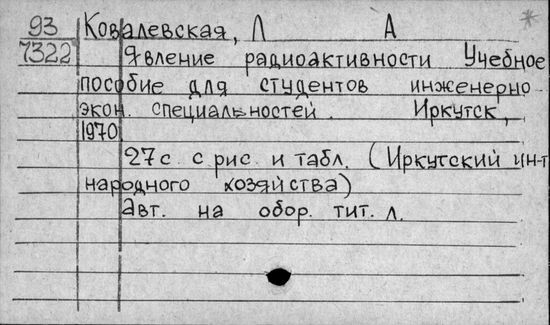 93 Ковалевская, Л А *
7322 Явление радиоактивности Учебное
пособие для студентов инженерно
экон. специальностей. Иркутск,
1970
27с. с рис. и табл. (Иркутский ин-т
народного хозяйства)
Авт. на обор. тит. л.